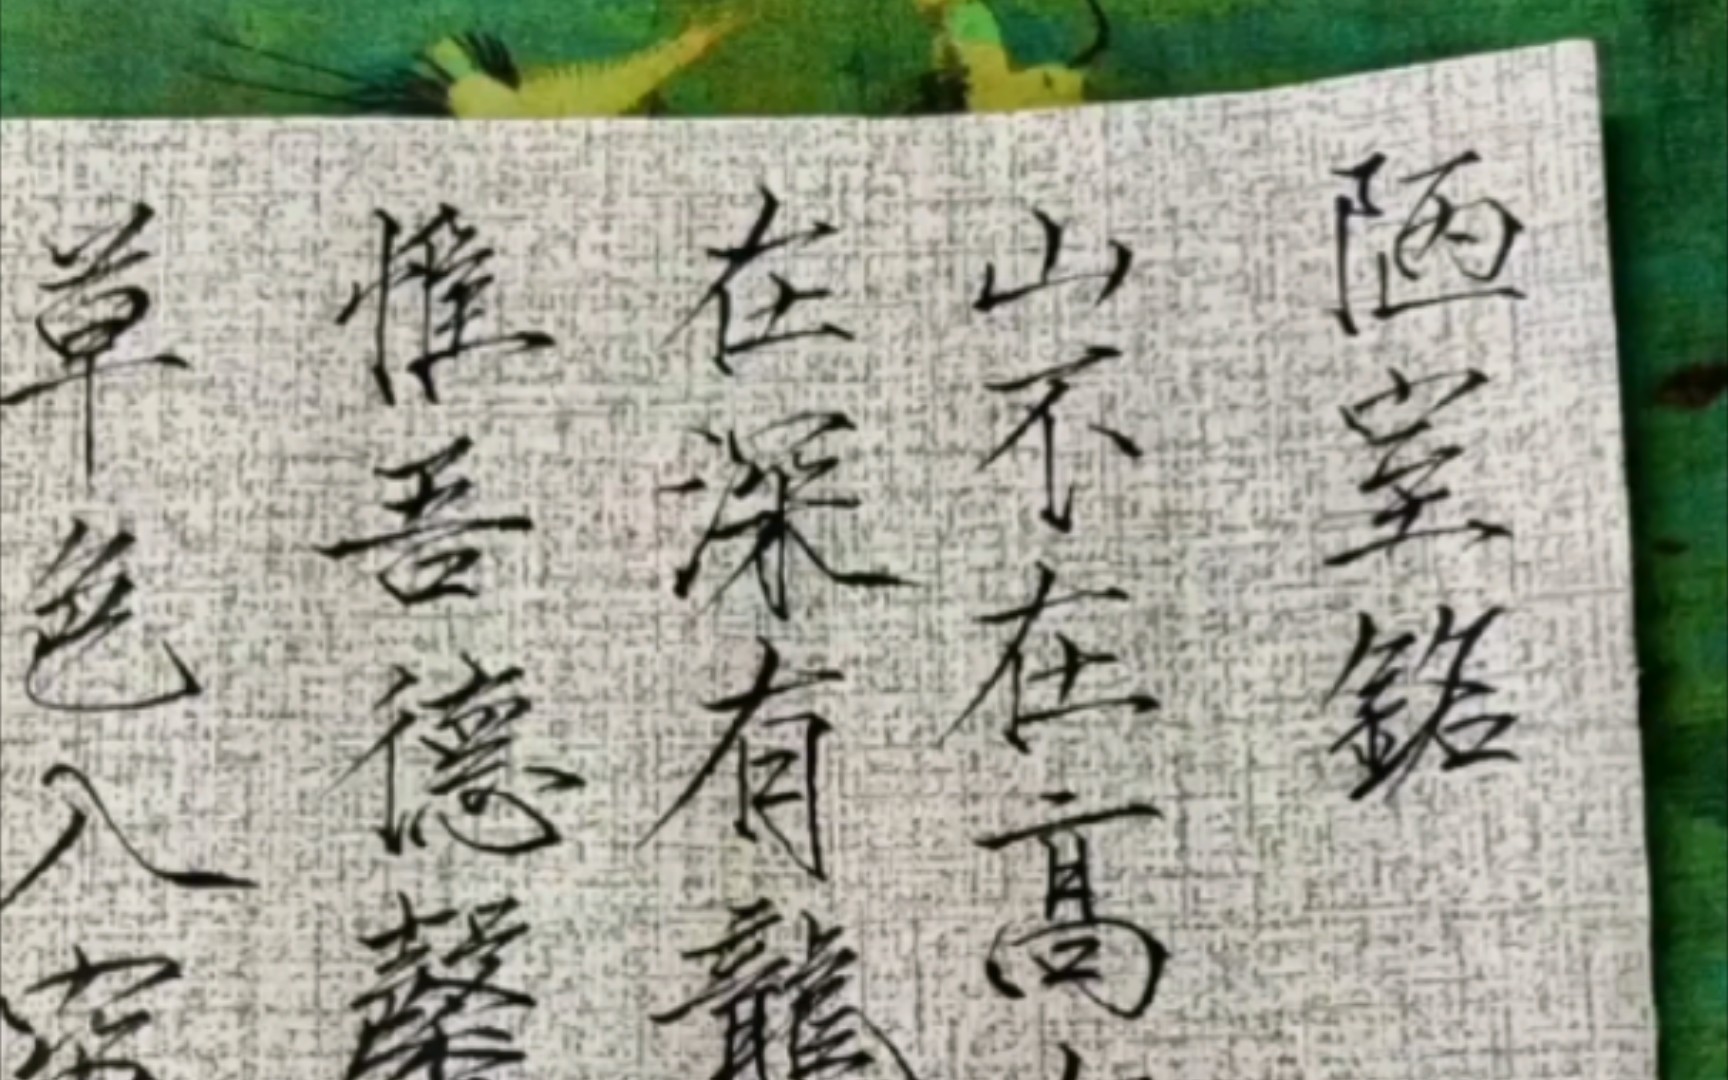 陋室銘
山不在高
在深有龍
惟吾德馨
草色入